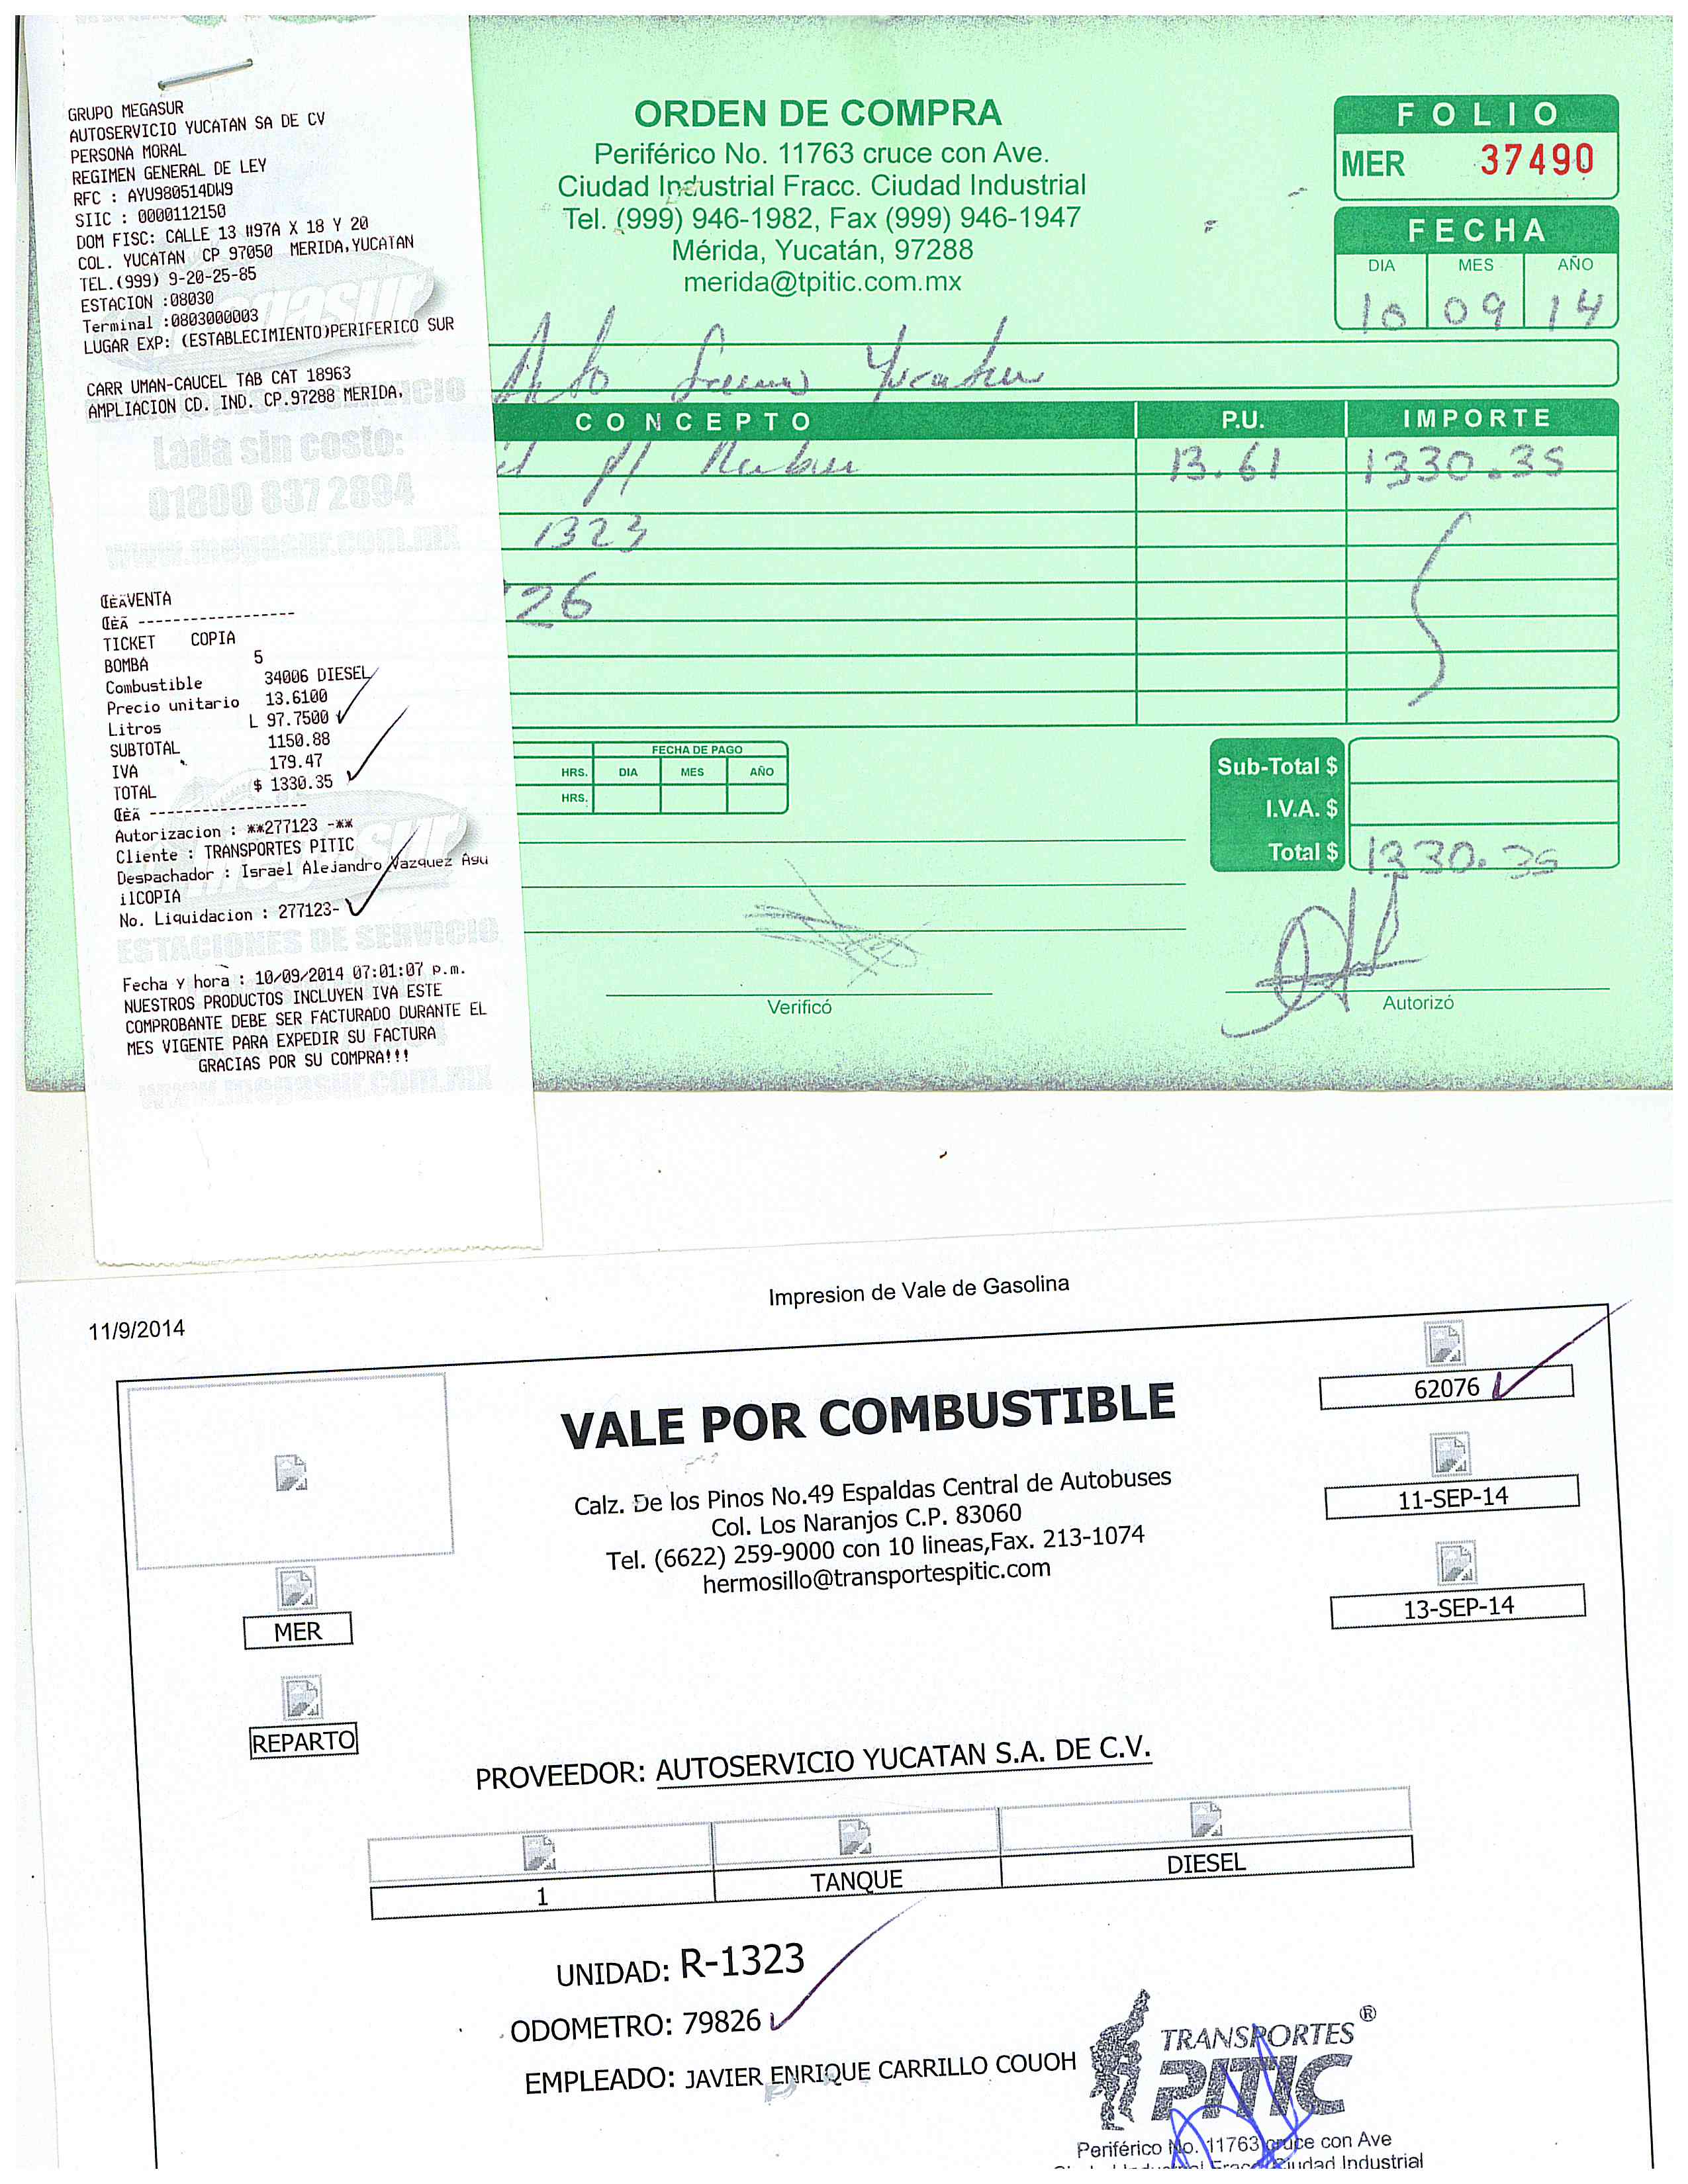 GRUPO MEGASUR
AUTOSERVICIO YUCATAN SA DE CV
PERSONA MORAL
REGIMEN GENERAL DE LEY
RFC : AYU980514DW9
SIIC : 0000112150
DOM FISC: CALLE 13 #97A X 18 Y 20
COL. YUCATAN CP 97050 MERIDA,YUCATAN
TEL.(999) 9-20-25-85
ESTACION :08030
Terminal :0803000003
LUGAR EXP: (ESTABLECIMIENTO)PERIFERICO SUR
CARR UMAN-CAUCEL TAB CAT 18963
AMPLIACION CD. IND. CP.97288 MERIDA,
Lada sin costo:
01800 837 2894
www.megasur.com.mx
VENTA
TICKET COPIA
BOMBA 5
Combustible 34006 DIESEL
Precio unitario 13.6100
Litros L 97.7500
SUBTOTAL 1150.88
IVA 179.47
TOTAL $ 1330.35
Autorizacion : **277123 -**
Cliente : TRANSPORTES PITIC
Despachador : Israel Alejandro Vazquez Agu
ilCOPIA
No. Liquidacion : 277123-
ESTACIONES DE SERVICIO
Fecha y hora : 10/09/2014 07:01:07 p.m.
NUESTROS PRODUCTOS INCLUYEN IVA ESTE
COMPROBANTE DEBE SER FACTURADO DURANTE EL
MES VIGENTE PARA EXPEDIR SU FACTURA
GRACIAS POR SU COMPRA!!!
www.megasur.com.mx
ORDEN DE COMPRA
Periférico No. 11763 cruce con Ave.
Ciudad Industrial Fracc. Ciudad Industrial
Tel. (999) 946-1982, Fax (999) 946-1947
Mérida, Yucatán, 97288
merida@tpitic.com.mx
FOLIO
MER 37490
FECHA
DIA MES AÑO
10 09 14
Yucatan
CONCEPTO P.U. IMPORTE
13.61 1330.35
1323
26
FECHA DE PAGO
HRS. DIA MES AÑO
HRS.
Sub-Total $
I.V.A. $
Total $ 1330.35
Verificó
Autorizó
Impresion de Vale de Gasolina
11/9/2014
VALE POR COMBUSTIBLE
62076
Calz. De los Pinos No.49 Espaldas Central de Autobuses
Col. Los Naranjos C.P. 83060
Tel. (6622) 259-9000 con 10 lineas,Fax. 213-1074
hermosillo@transportespitic.com
11-SEP-14
13-SEP-14
MER
REPARTO
PROVEEDOR: AUTOSERVICIO YUCATAN S.A. DE C.V.
1 TANQUE DIESEL
UNIDAD: R-1323
ODOMETRO: 79826
EMPLEADO: JAVIER ENRIQUE CARRILLO COUOH
TRANSPORTES ®
PITIC
Periférico No. 11763 cruce con Ave
Ciudad Industrial